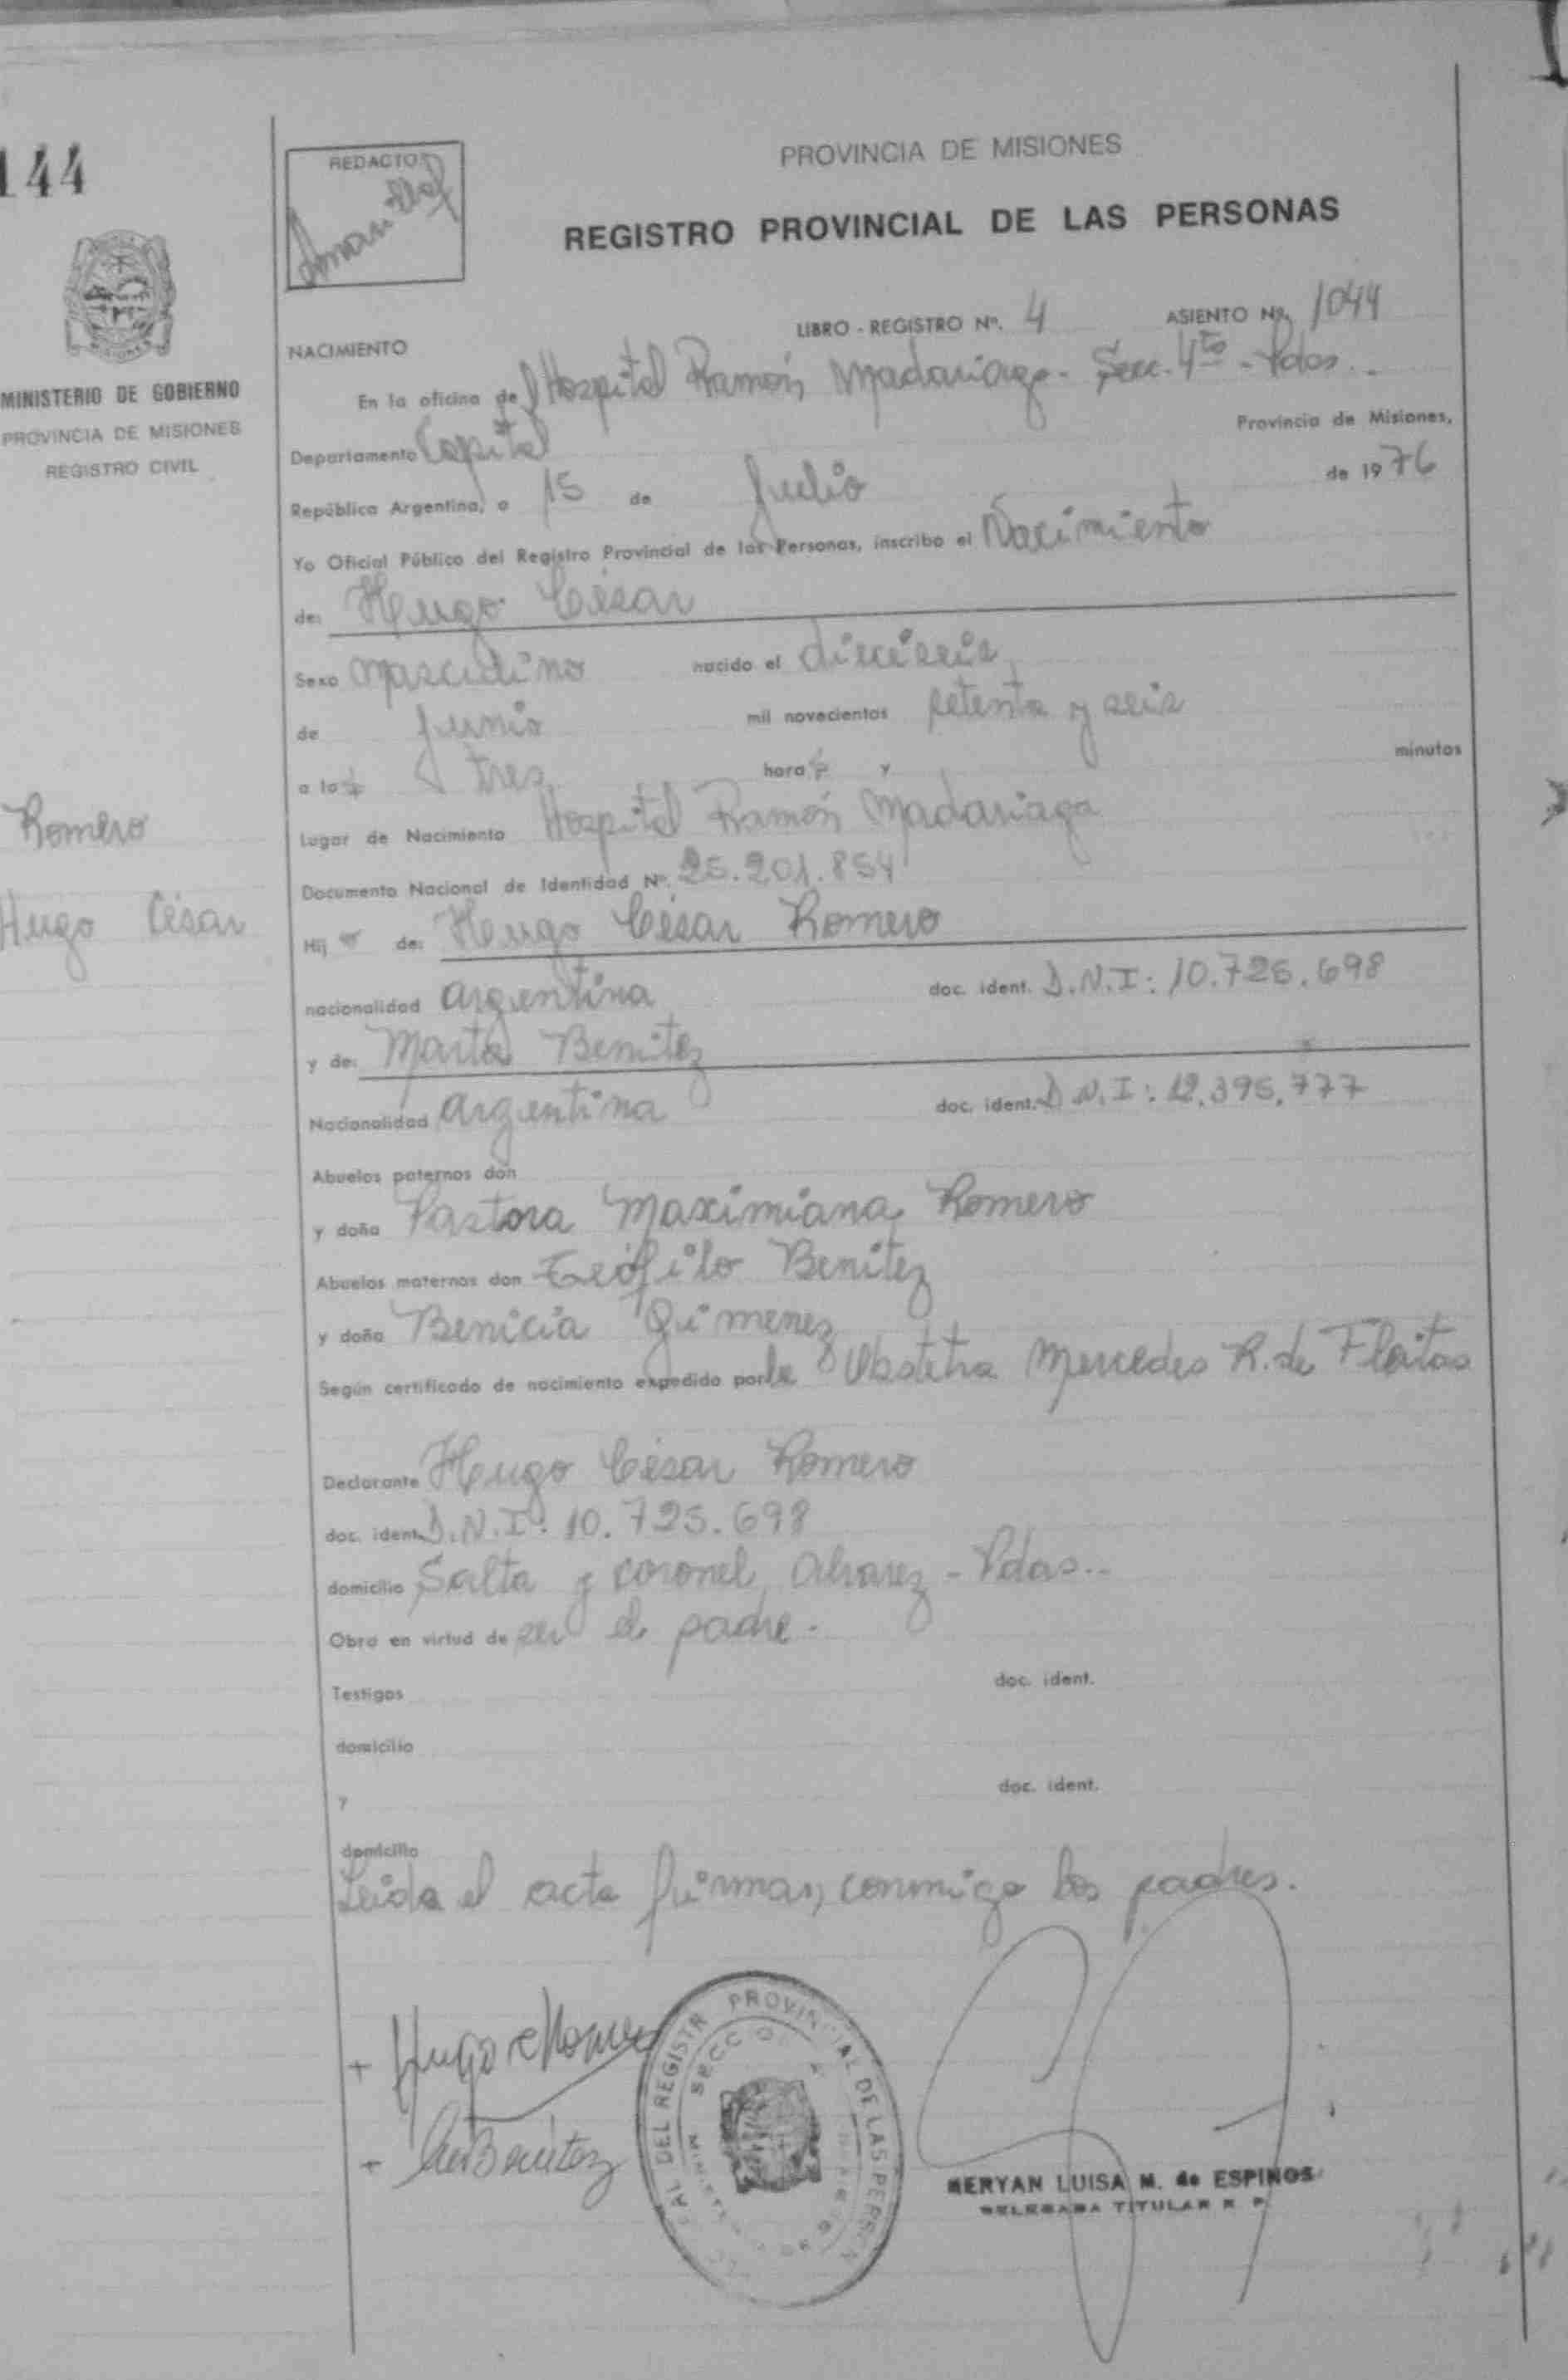 144
REDACTOR
PROVINCIA DE MISIONES
REGISTRO PROVINCIAL DE LAS PERSONAS
LIBRO - REGISTRO Nº. 4 ASIENTO Nº. 1044
NACIMIENTO
MINISTERIO DE GOBIERNO
PROVINCIA DE MISIONES
REGISTRO CIVIL
En la oficina del Hospital Ramón Madariaga - Secc. 4ta - Pdas.
Departamento Capital Provincia de Misiones,
República Argentina, a 15 de Julio de 1976
Yo Oficial Público del Registro Provincial de las Personas, inscribo el Nacimiento
de: Hugo César
Sexo Masculino nacido el dieciseis
de Junio mil novecientos setenta y seis
a las tres horas y minutos
Romero
Hugo César
Lugar de Nacimiento Hospital Ramón Madariaga
Documento Nacional de Identidad Nº. 25.201.854
Hijo de: Hugo César Romero
nacionalidad argentina doc. ident. D.N.I: 10.725.698
y de: Marta Benitez
Nacionalidad argentina doc. ident. D.N.I: 12.395.777
Abuelos paternos don
y doña Pastora Maximiana Romero
Abuelos maternos don Teófilo Benitez
y doña Benicia Gimenez
Según certificado de nacimiento expedido por la Obstetra Mercedes R. de Fleitas
Declarante Hugo César Romero
doc. ident. D.N.I: 10.725.698
domicilio Salta y coronel Alvarez - Pdas..
Obra en virtud de ser el padre.
Testigos doc. ident.
domicilio
y doc. ident.
domicilio
Leida el acta firman conmigo los padres.
+ Hugo C Romero
- Benitez
PROVINCIAL DEL REGISTRO PROVINCIAL DE LAS PERSONAS
MERYAN LUISA M. de ESPINOS
DELEGADA TITULAR R P